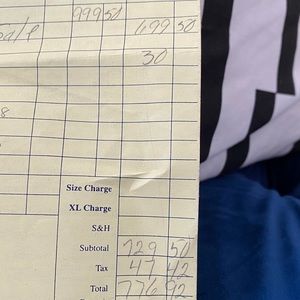 999 50
Sale 699 50
30
8
Size Charge
XL Charge
S&H
Subtotal 729 50
Tax 47 42
Total 776 92